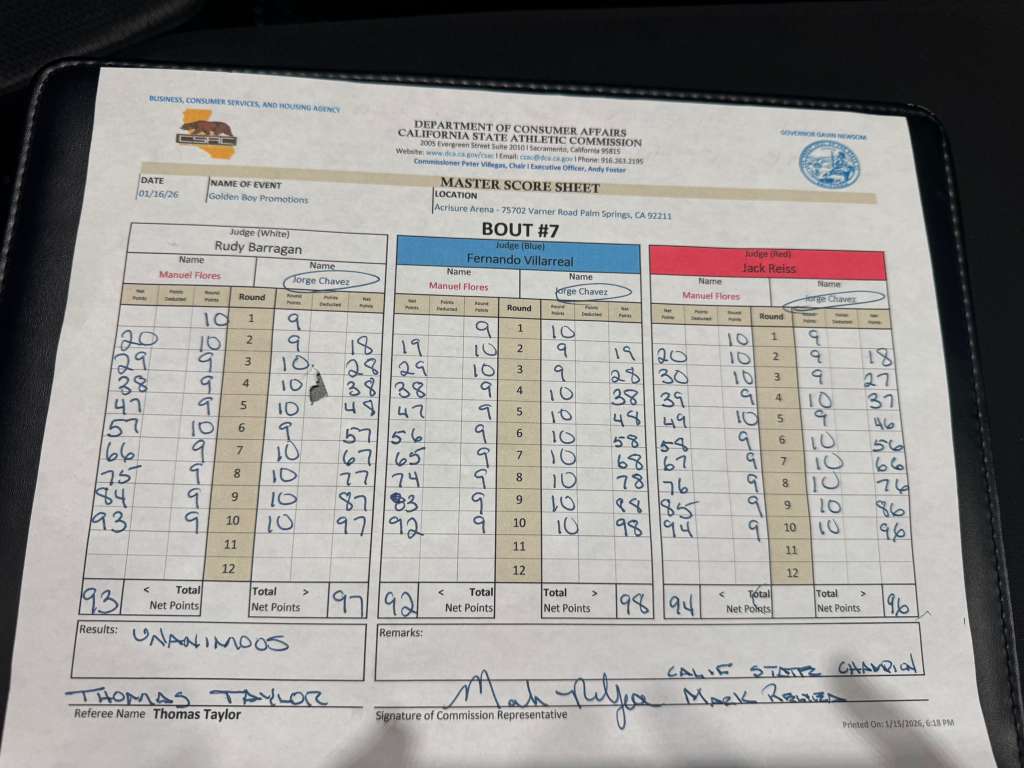 BUSINESS, CONSUMER SERVICES, AND HOUSING AGENCY
GOVERNOR GAVIN NEWSOM
CSAC
DEPARTMENT OF CONSUMER AFFAIRS
CALIFORNIA STATE ATHLETIC COMMISSION
2005 Evergreen Street Suite 2010 | Sacramento, California 95815
Website: www.dca.ca.gov/csac | Email: csac@dca.ca.gov | Phone: 916.263.2195
Commissioner Peter Villegas, Chair | Executive Officer, Andy Foster
MASTER SCORE SHEET
DATE NAME OF EVENT LOCATION
01/16/26 Golden Boy Promotions Acrisure Arena - 75702 Varner Road Palm Springs, CA 92211
BOUT #7
Judge (White) Judge (Blue) Judge (Red)
Rudy Barragan Fernando Villarreal Jack Reiss
Name Name Name Name Name Name
Manuel Flores Jorge Chavez Manuel Flores Jorge Chavez Manuel Flores Jorge Chavez
Net Points Points Deducted Round Points Round Round Points Points Deducted Net Points Net Points Points Deducted Round Points Round Round Points Points Deducted Net Points Net Points Points Deducted Round Points Round Round Points Points Deducted Net Points
10 1 9 9 1 10 10 1 9
20 10 2 9 18 19 10 2 9 19 20 10 2 9 18
29 9 3 10 28 29 10 3 9 28 30 10 3 9 27
38 9 4 10 38 38 9 4 10 38 39 9 4 10 37
47 9 5 10 48 47 9 5 10 48 49 10 5 9 46
57 10 6 9 57 56 9 6 10 58 58 9 6 10 56
66 9 7 10 67 65 9 7 10 68 67 9 7 10 66
75 9 8 10 77 74 9 8 10 78 76 9 8 10 76
84 9 9 10 87 83 9 9 10 88 85 9 9 10 86
93 9 10 10 97 92 9 10 10 98 94 9 10 10 96
11 11 11
12 12 12
93 < Total Net Points Total > Net Points 97 92 < Total Net Points Total > Net Points 98 94 < Total Net Points Total > Net Points 96
Results: UNANIMOOS Remarks:
CALIF STATE CHAMPION
THOMAS TAYLOR
Referee Name Thomas Taylor Signature of Commission Representative
Printed On: 1/15/2026, 6:18 PM